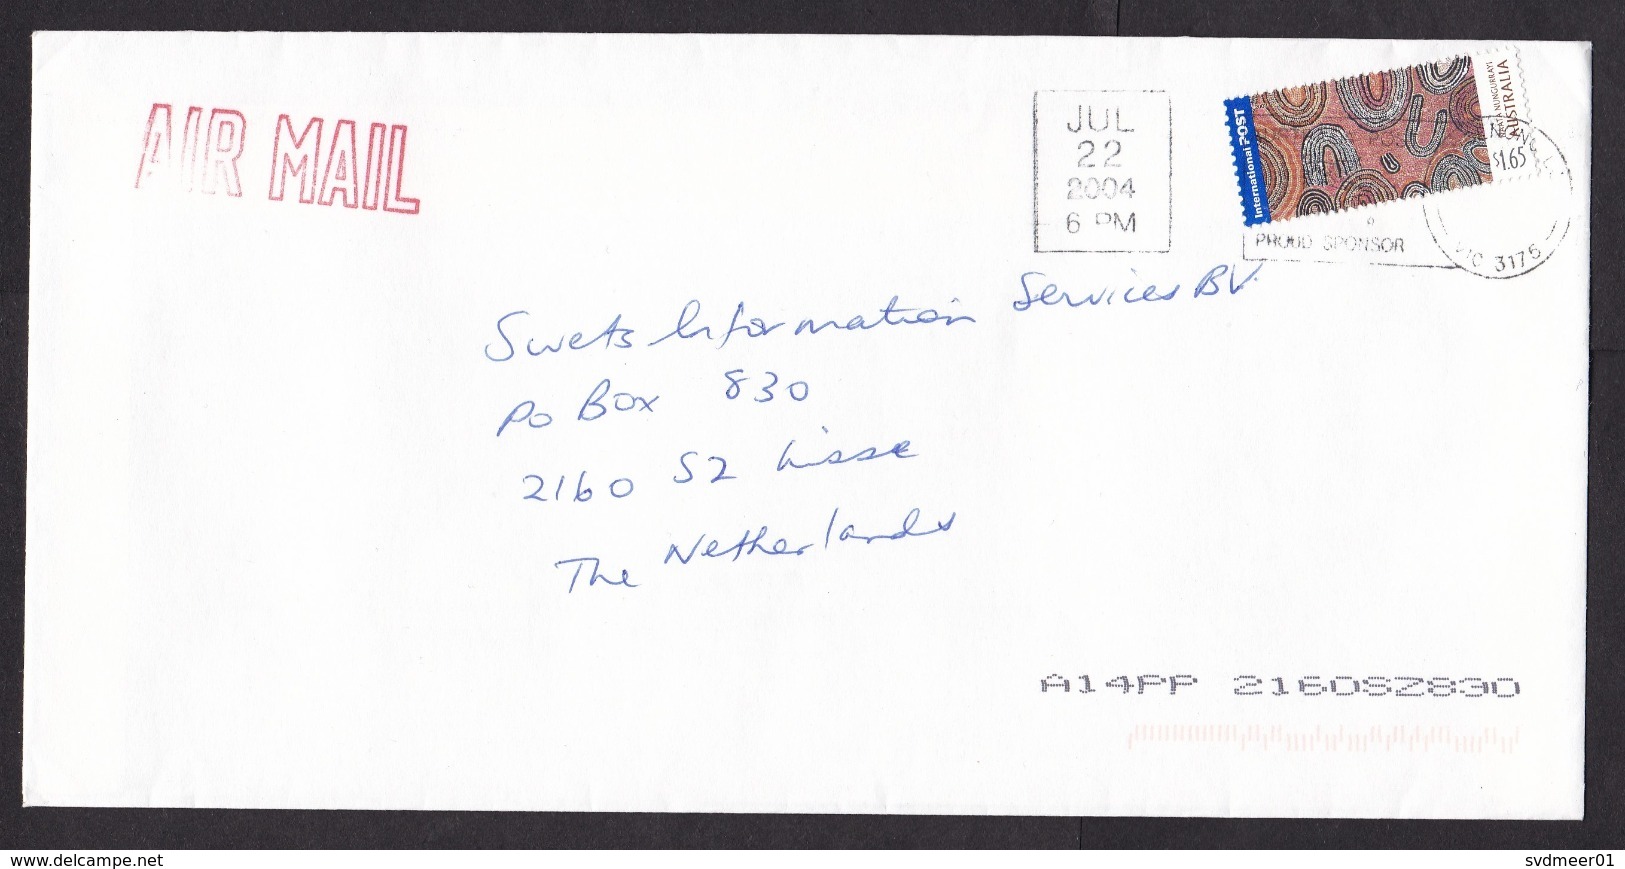 AIR MAIL
JUL
22
2004
6 PM
International POST
NUNGURRAYI
AUSTRALIA
$1.65
PROUD SPONSOR
VIC 3175
Swets Information Services BV.
PO Box 830
2160 SZ Lisse
The Netherlands
A14PP 2160SZ830
www.delcampe.net
svdmeer01